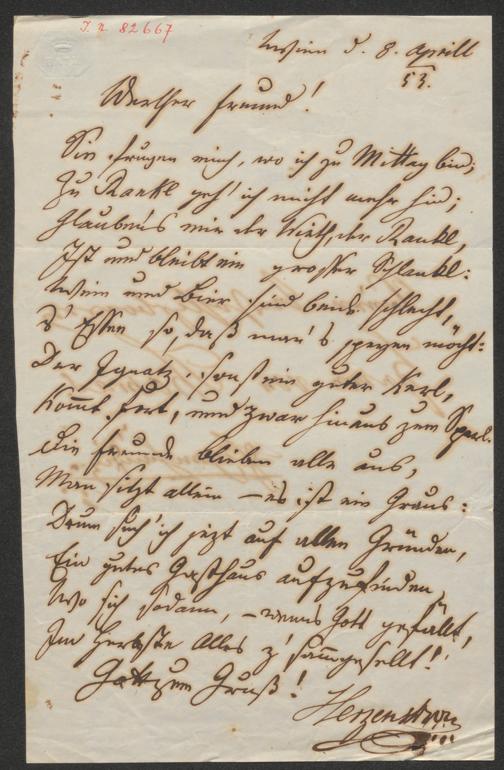 I. N. 82667
Wien d. 8. Aprill
53.
Werther Freund!
Sie frugen mich, wo ich zu Mittag bin;
Zu Rankl geh' ich nicht mehr hin;
Glauben's mir der Wirth, der Rankl,
Ist und bleibt ein grosser Schlankl:
Wein und Bier sind beide schlecht,
's Essen so, daß man's speyen möcht:
Der Ignatz, sonst ein guter Kerl,
Kommt fort, und zwar hinaus zum Sperl.
Die Freunde blieben alle aus,
Man sitzt allein – es ist ein Graus:
Drum such' ich jezt auf allen Gründen,
Ein gutes Gasthaus aufzufinden,
Wo sich sodann, – wenns Gott gefällt,
Im Herbste Alles z'sammgesellt!
Gott zum Gruß!